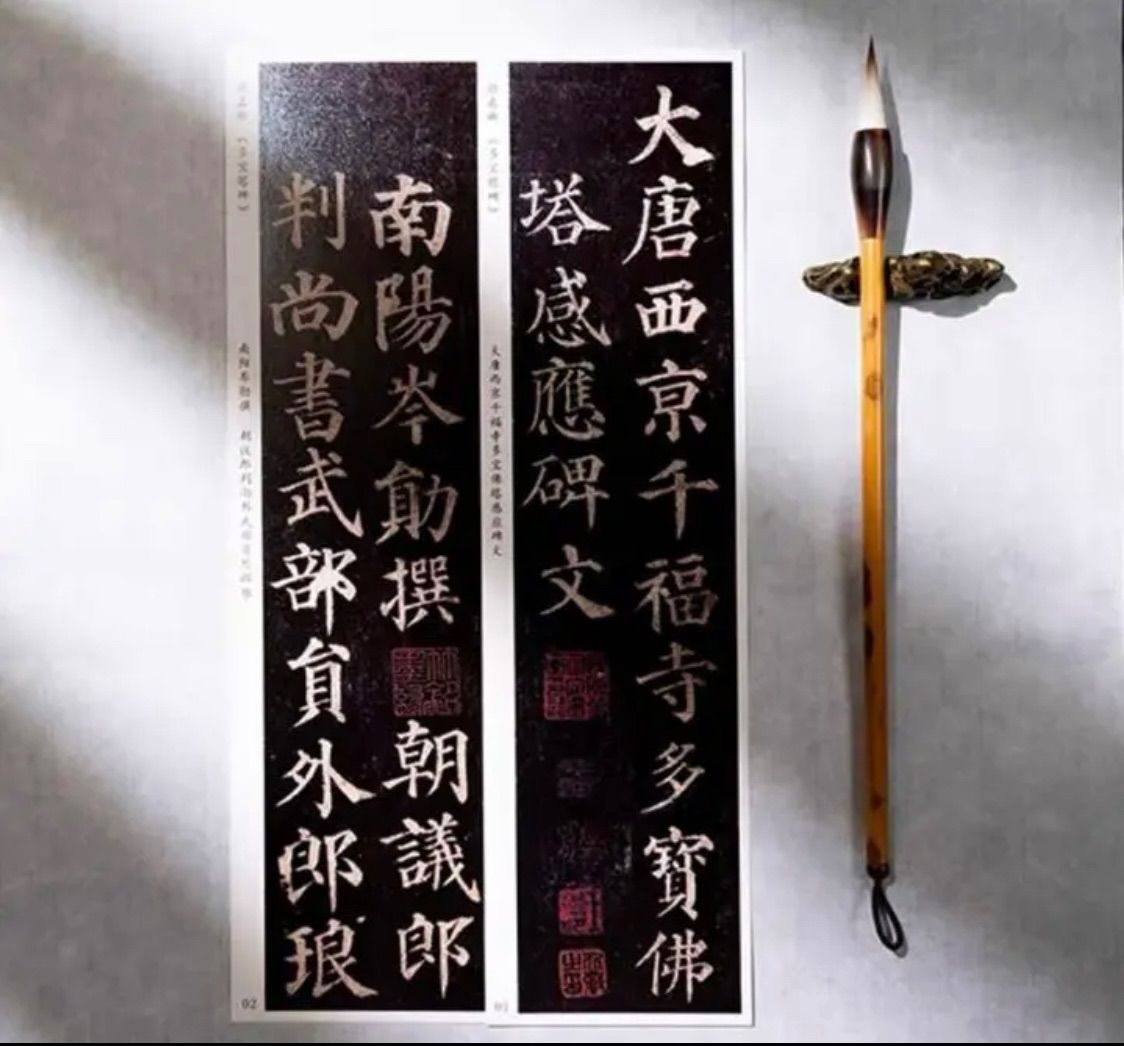 大唐西京千福寺多寶佛
塔感應碑文
大唐西京千福寺多宝佛塔感应碑文
01
南陽岑勛撰朝議郎
判尚書武部員外郎琅
南阳岑勋撰 朝议郎判尚书武部员外郎琅
02